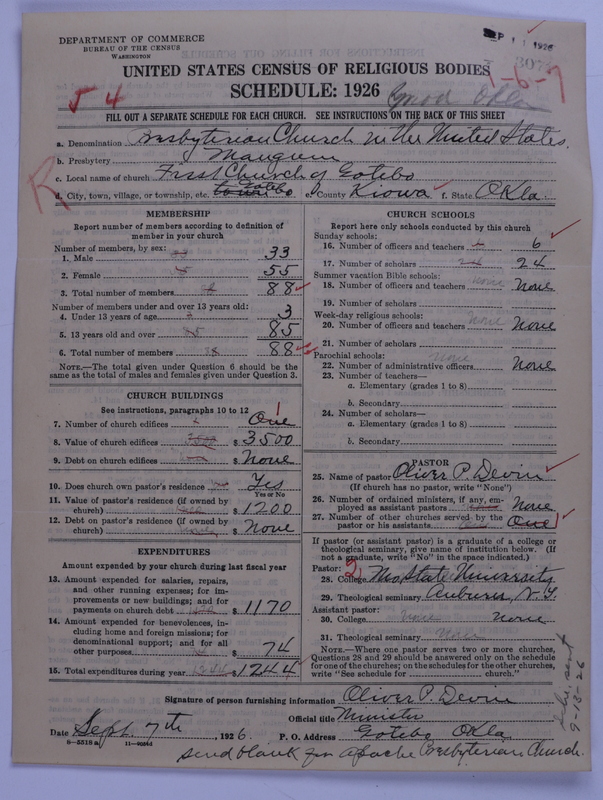 DEPARTMENT OF COMMERCE
BUREAU OF THE CENSUS
WASHINGTON
SEP 11 1926
307
1-6-7
UNITED STATES CENSUS OF RELIGIOUS BODIES
SCHEDULE: 1926
54
Okla
FILL OUT A SEPARATE SCHEDULE FOR EACH CHURCH. SEE INSTRUCTIONS ON THE BACK OF THIS SHEET
R
a. Denomination Presbyterian Church in the United States.
b. Presbytery Mangum
c. Local name of church First Church of Gotebo
d. City, town, village, or township, etc. Gotebo e. County Kiowa f. State Okla
MEMBERSHIP
Report number of members according to definition of member in your church
Number of members, by sex:
1. Male 33
2. Female 55
3. Total number of members 88
Number of members under and over 13 years old:
4. Under 13 years of age 3
5. 13 years old and over 85
6. Total number of members 88
NOTE.—The total given under Question 6 should be the
same as the total of males and females given under Question 3.
CHURCH BUILDINGS
See instructions, paragraphs 10 to 12
7. Number of church edifices One
8. Value of church edifices $ 3500
9. Debt on church edifices $ None
10. Does church own pastor's residence Yes
Yes or No
11. Value of pastor's residence (if owned by
church) $ 1200
12. Debt on pastor's residence (if owned by
church) $ None
EXPENDITURES
Amount expended by your church during last fiscal year
13. Amount expended for salaries, repairs,
and other running expenses; for im-
provements or new buildings; and for
payments on church debt $ 1170
14. Amount expended for benevolences, in-
cluding home and foreign missions; for
denominational support; and for all
other purposes $ 74
15. Total expenditures during year $ 1244
CHURCH SCHOOLS
Report here only schools conducted by this church
Sunday schools:
16. Number of officers and teachers 6
17. Number of scholars 24
Summer vacation Bible schools:
18. Number of officers and teachers None
19. Number of scholars
Week-day religious schools:
20. Number of officers and teachers None
21. Number of scholars
Parochial schools:
22. Number of administrative officers None
23. Number of teachers—
a. Elementary (grades 1 to 8)
b. Secondary
24. Number of scholars—
a. Elementary (grades 1 to 8)
b. Secondary
PASTOR
25. Name of pastor Oliver P. Devin
(If church has no pastor, write "None")
26. Number of ordained ministers, if any, em-
ployed as assistant pastors None
27. Number of other churches served by the
pastor or his assistants One
If pastor (or assistant pastor) is a graduate of a college or
theological seminary, give name of institution below. (If
not a graduate, write "No" in the space indicated.)
Pastor:
28. College Mo State University
29. Theological seminary Auburn, N.Y.
Assistant pastor:
30. College None
31. Theological seminary
NOTE.—Where one pastor serves two or more churches,
Questions 28 and 29 should be answered only on the schedule
for one of the churches; on the schedules for the other churches,
write "See schedule for church."
sent
9-13-26
Signature of person furnishing information Oliver P. Devin
Official title Minister
Date Sept 7th, 1926. P. O. Address Gotebo Okla
8-5518 a
send blank for Apache Presbyterian Church.